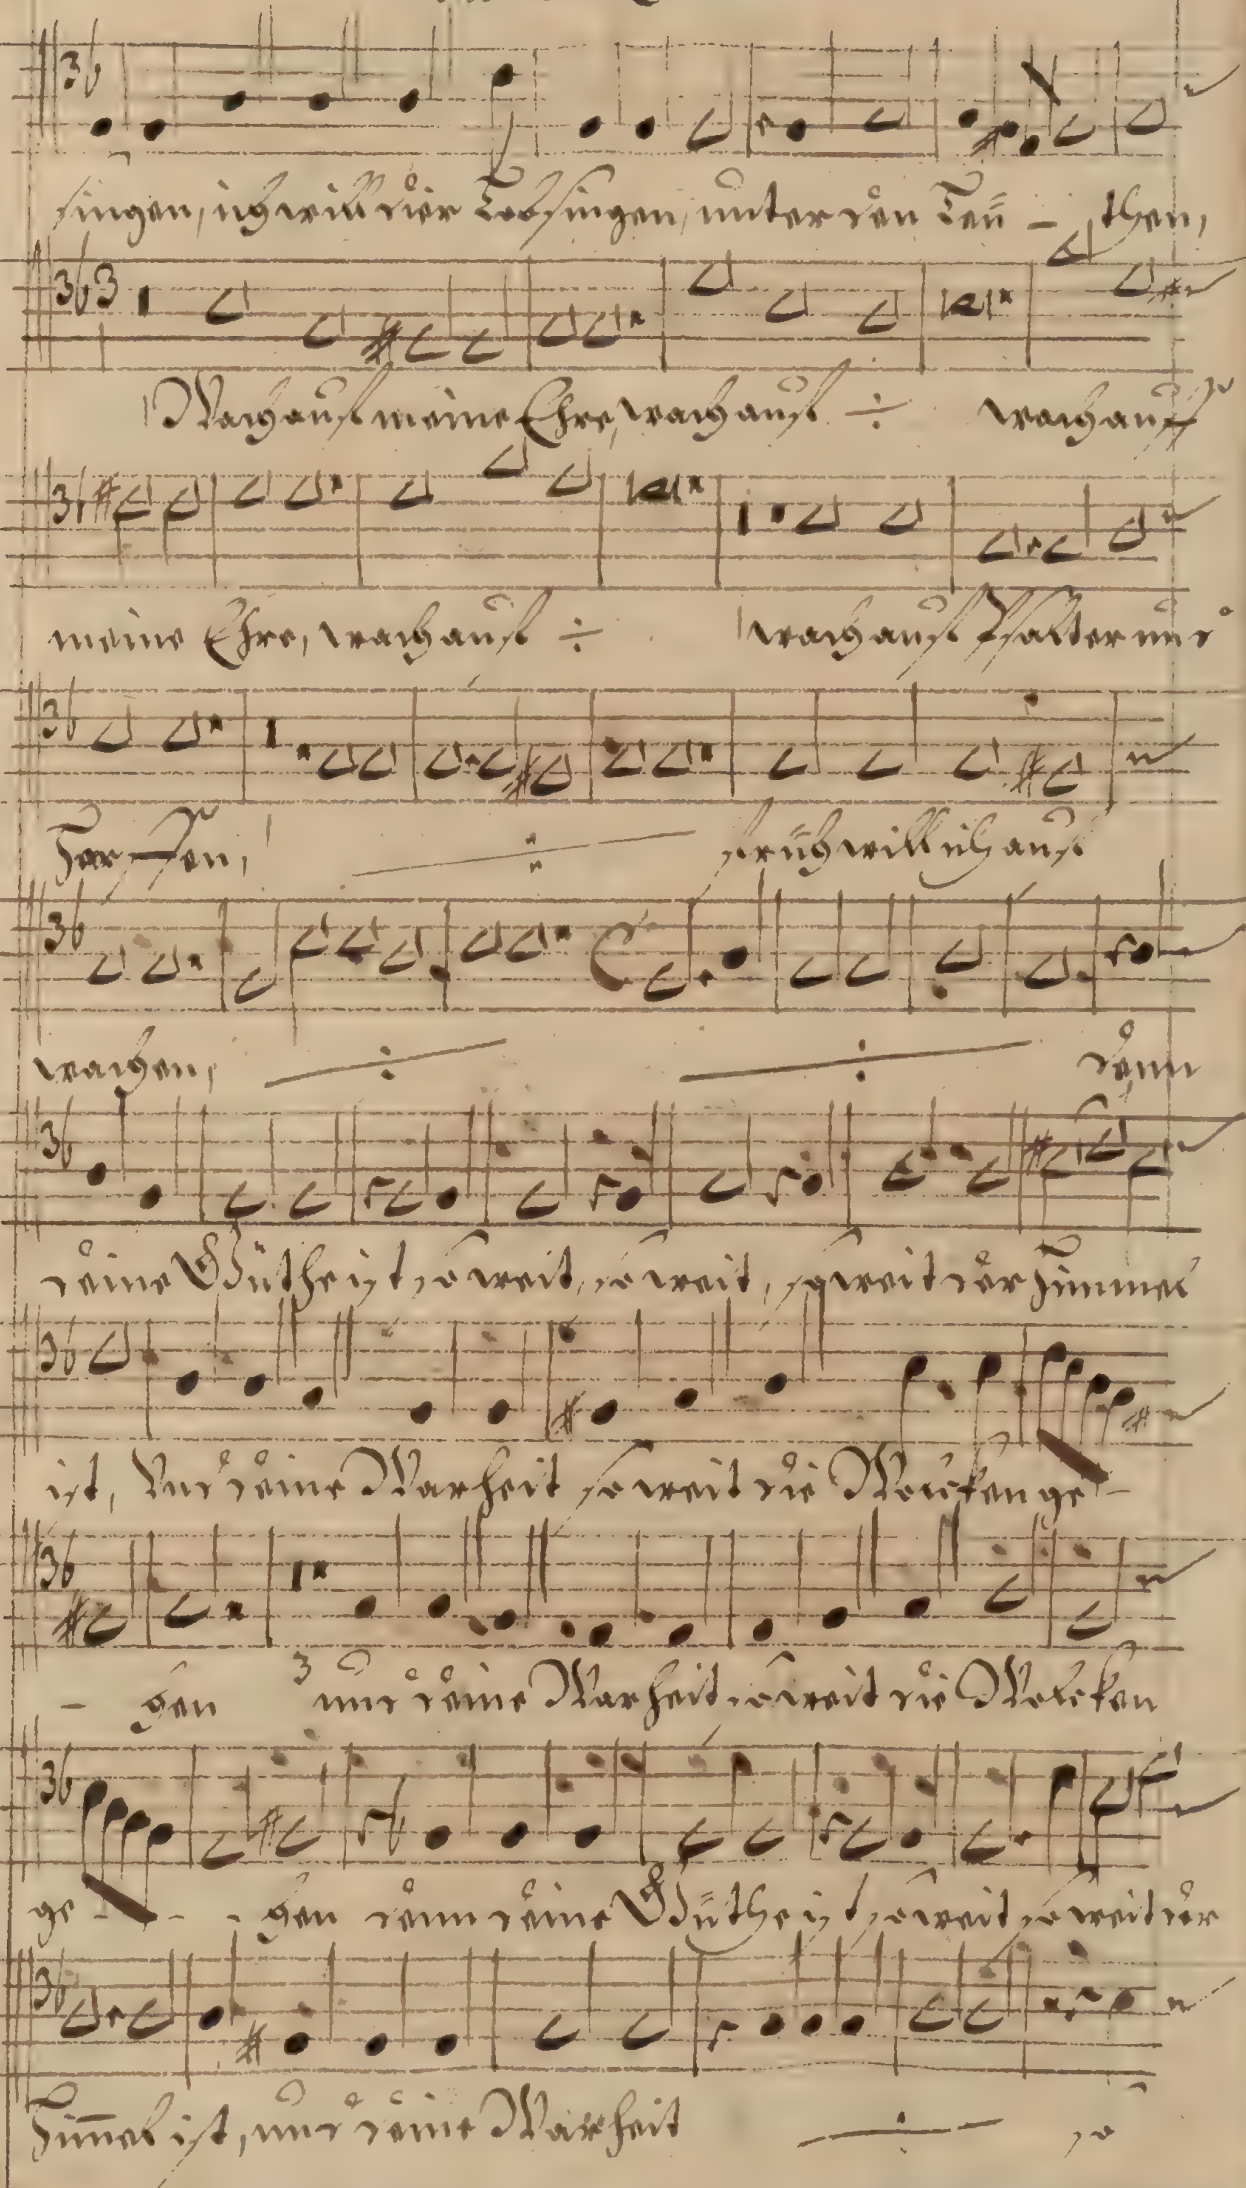 singen, ich will dier Lobsingen, unter den Leü - then,
Wach auf meine Ehre, wach auf ÷ wach auff
meine Ehre, wach auf ÷ wach auf Psalter und
Harpffen, ÷ früh will ich auf
wachen, ÷ ÷ denn
deine Güthe ist so weit, so weit, so weit der Himmel
ist, Und deine Warheit so weit die Wolcken ge -
- hen und deine Warheit so weit die Wolcken
ge - - - hen denn deine Güthe ist so weit so weit der
Him̄el ist, und deine Warheit ÷ so